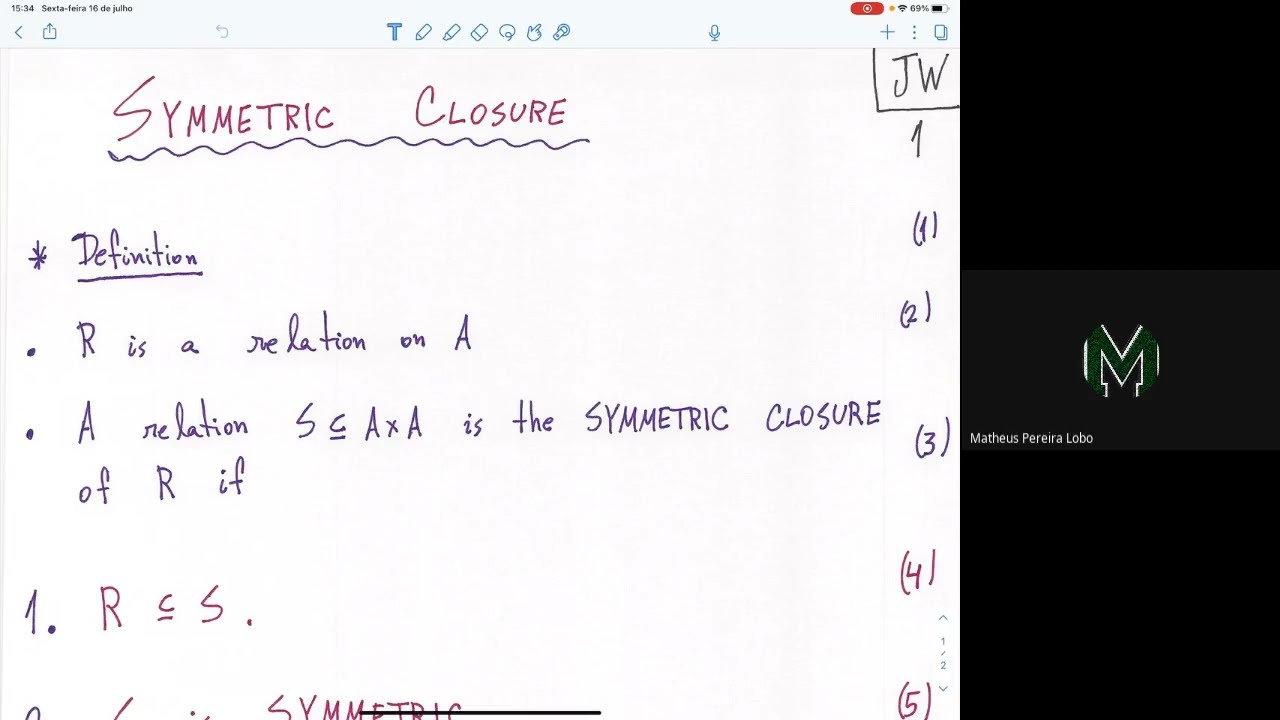 15:34 Sexta-feira 16 de julho 69%
JW
1
SYMMETRIC CLOSURE
(1)
* Definition
(2)
• R is a relation on A
• A relation S ⊆ A×A is the SYMMETRIC CLOSURE
(3)
of R if
(4)
1. R ⊆ S.
1
/
2
(5)
2. S is SYMMETRIC
Matheus Pereira Lobo